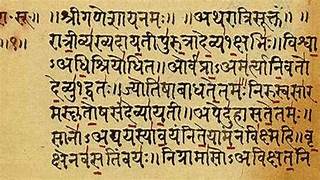 रा॰सू॰ ॥श्रीगणेशायनमः॥ ॥अथरात्रिसूक्तं॥
॥१॥ रात्रीव्यख्यदायतीपुरुत्रादेव्य१क्षभिः॥विश्वा
ऽअधिश्रियोधित॥ओर्वप्राऽअमर्त्यानिवतो
देव्यु१द्वतः॥ज्योतिषाबाधतेतमः॥निरुस्वसार
मस्कृतोषसंदेव्यायती॥अपेदुहासतेतमः॥
सानोऽअद्ययस्यावयंनितेयामन्नविक्ष्महि॥वृ
क्षेनवसतिंवयः॥निग्रामासोऽअविक्षतनि